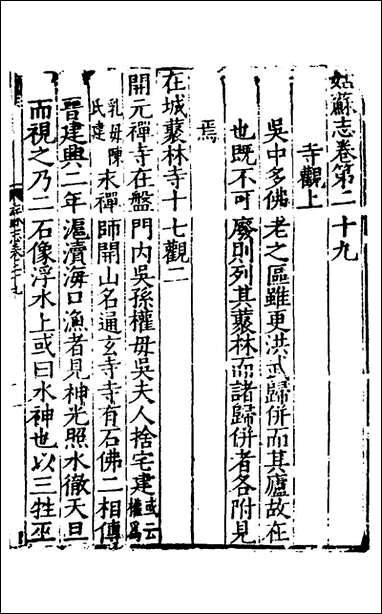 姑蘇志卷第二十九
寺觀上
吳中多佛老之區雖更洪武歸併而其廬故在
也既不可廢則列其叢林而諸歸併者各附見
焉
在城叢林寺十七觀二
開元禪寺在盤門內吳孫權母吳夫人捨宅建或云權爲
乳母陳氏建禪師開山名通玄寺寺有石佛二相傳
晉建興二年滬瀆海口漁者見神光照水徹天旦
而視之乃二石像浮水上或曰水神也以三牲巫